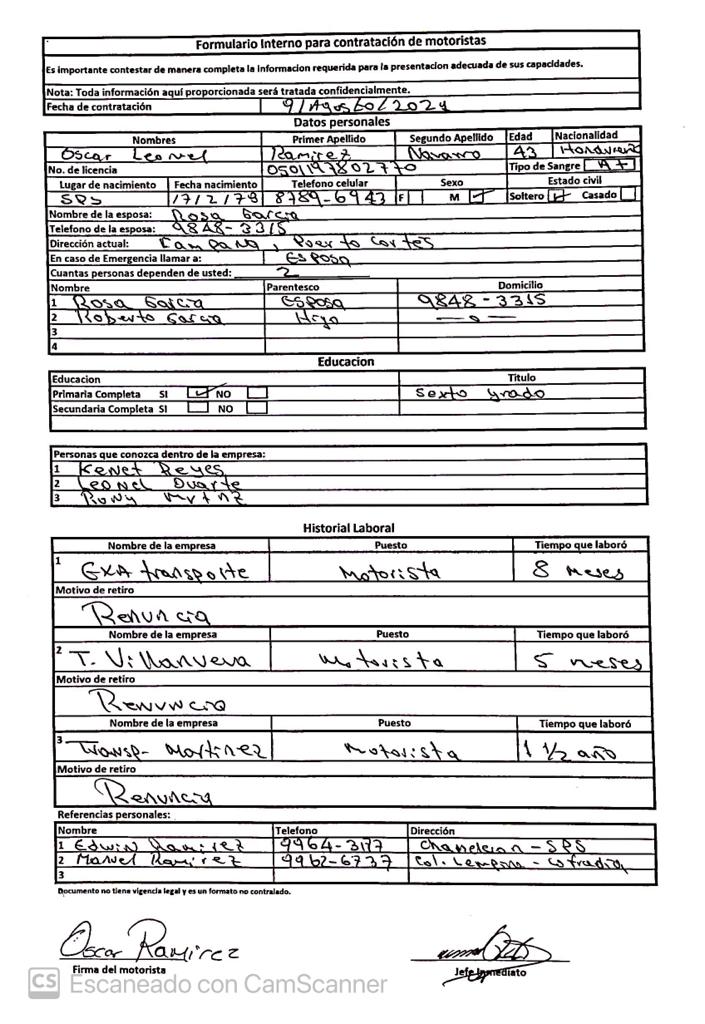 Formulario Interno para contratación de motoristas
Es importante contestar de manera completa la Informacion requerida para la presentacion adecuada de sus capacidades.
Nota: Toda información aquí proporcionada será tratada confidencialmente.
Fecha de contratación 9/Agosto/2024
Datos personales
Nombres Primer Apellido Segundo Apellido Edad Nacionalidad
Oscar Leonel Ramirez Navarro 43
No. de licencia 0501197802770 Tipo de Sangre A+
Lugar de nacimiento Fecha nacimiento Telefono celular Sexo Estado civil
SPS 17/2/79 8789-6943 F M Soltero Casado
Nombre de la esposa: Rosa Garcia
Telefono de la esposa: 9848-3315
Dirección actual: Puerto Cortés
En caso de Emergencia llamar a: Esposa
Cuantas personas dependen de usted: 2
Nombre Parentesco Domicilio
1 Rosa Garcia Esposa 9848-3315
2 Roberto Garcia Hijo
3
4
Educacion
Educacion Titulo
Primaria Completa SI NO Sexto grado
Secundaria Completa SI NO
Personas que conozca dentro de la empresa:
1 Kenet Reyes
2 Leonel Duarte
3 Rony
Historial Laboral
Nombre de la empresa Puesto Tiempo que laboró
1 GXA transporte Motorista 8 meses
Motivo de retiro
Renuncia
Nombre de la empresa Puesto Tiempo que laboró
2 T. Villanueva Motorista 5 meses
Motivo de retiro
Renuncia
Nombre de la empresa Puesto Tiempo que laboró
3 Transp- Martinez Motorista 1 1/2 año
Motivo de retiro
Renuncia
Referencias personales:
Nombre Telefono Dirección
1 Edwin Ramirez 9964-3177 Chamelecon - SPS
2 Manuel Ramirez 9962-6737 Col. - Cofradia
3
Documento no tiene vigencia legal y es un formato no contralado.
Oscar Ramirez
Firma del motorista Jefe Inmediato
CS Escaneado con CamScanner